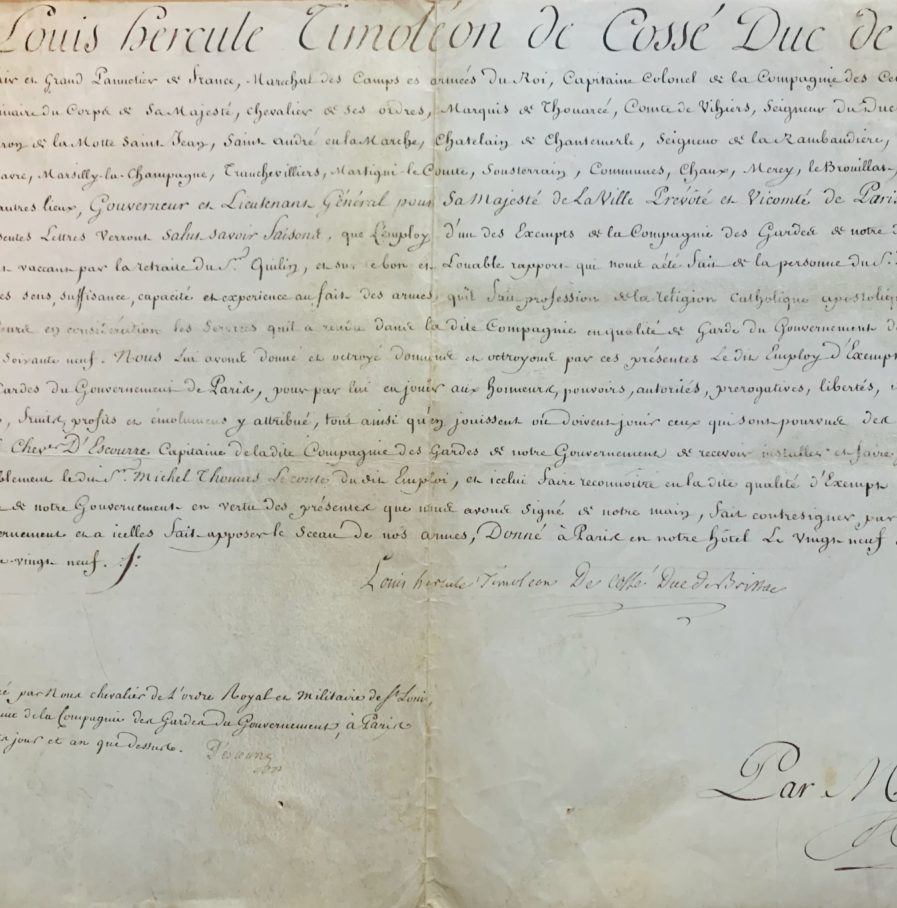 Louis hercule Timoléon de Cossé Duc de
air et Grand Pannetier de France, Marechal des Camps es armées du Roi, Capitaine Colonel de la Compagnie des Ce
inaire du Corps de Sa Majesté, chevalier de ses ordres, Marquis de Thouarcé, Comte de Vihiers, Seigneur du Duc
ron de la Motte Saint Jean, Saint andré en la Marche, Chatelain de Chantemerle, Seigneur de la Rambaudière,
avre, Marsilly-la-Champagne, Tranchevilliers, Martigni-le-Comte, Sousterrain, Communes, Chaux, Merey, le Brouillat,
autres lieux, Gouverneur et Lieutenant Général pour Sa Majesté de La Ville Prévôté et Vicomté de Paris
sentes Lettres Verront Salut savoir faisons, que L'employ d'un des Exempts de la Compagnie des Gardes de notre
t vaccant par la retraite du Sr. Quilin, et sur le bon et Louable rapport qui nous a été fait de la personne du Sr.
es sens, suffisance, capacité et experience au fait des armes, qu'il fait profession de la religion Catholique apostoliq
en considération les Services quil a rendu dans la dite Compagnie en qualité de Garde du Gouvernement de
soixante neuf. Nous lui avons donné et octroyé donnons et octroyons par ces présentes Le dit Employ d'Exempt
Gardes du Gouvernement de Paris, pour par lui en jouir aux honneurs, pouvoirs, autorités, prerogatives, libertés,
, fruits, profits et émolumens y attribué, tout ainsi qu'en jouissent où doivent jouir ceux qui sont pourvus des
Chever. D'Escourre Capitaine de la dite Compagnie des Gardes de notre Gouvernement de recevoir installer et faire
blement le dit Sr. Michel Thomas Lecomte du dit Emploi, et icelui faire reconnoitre en la dite qualité d'Exempt
de notre Gouvernement en vertu des présentes que nous avons Signé de notre main, fait contresigner par
ernement et a icelles fait apposer le Sceau de nos armes, Donné à Paris en notre hôtel Le vingt neuf
e-vingt neuf. ./.
Louis hercule Timoleon De Cossé Duc de Brissac
é par Nous chevalier de L'ordre Royal et Militaire de St. Louis,
ine de la Compagnie des Gardes du Gouvernement, à Paris
jour et an que dessus.
Par M